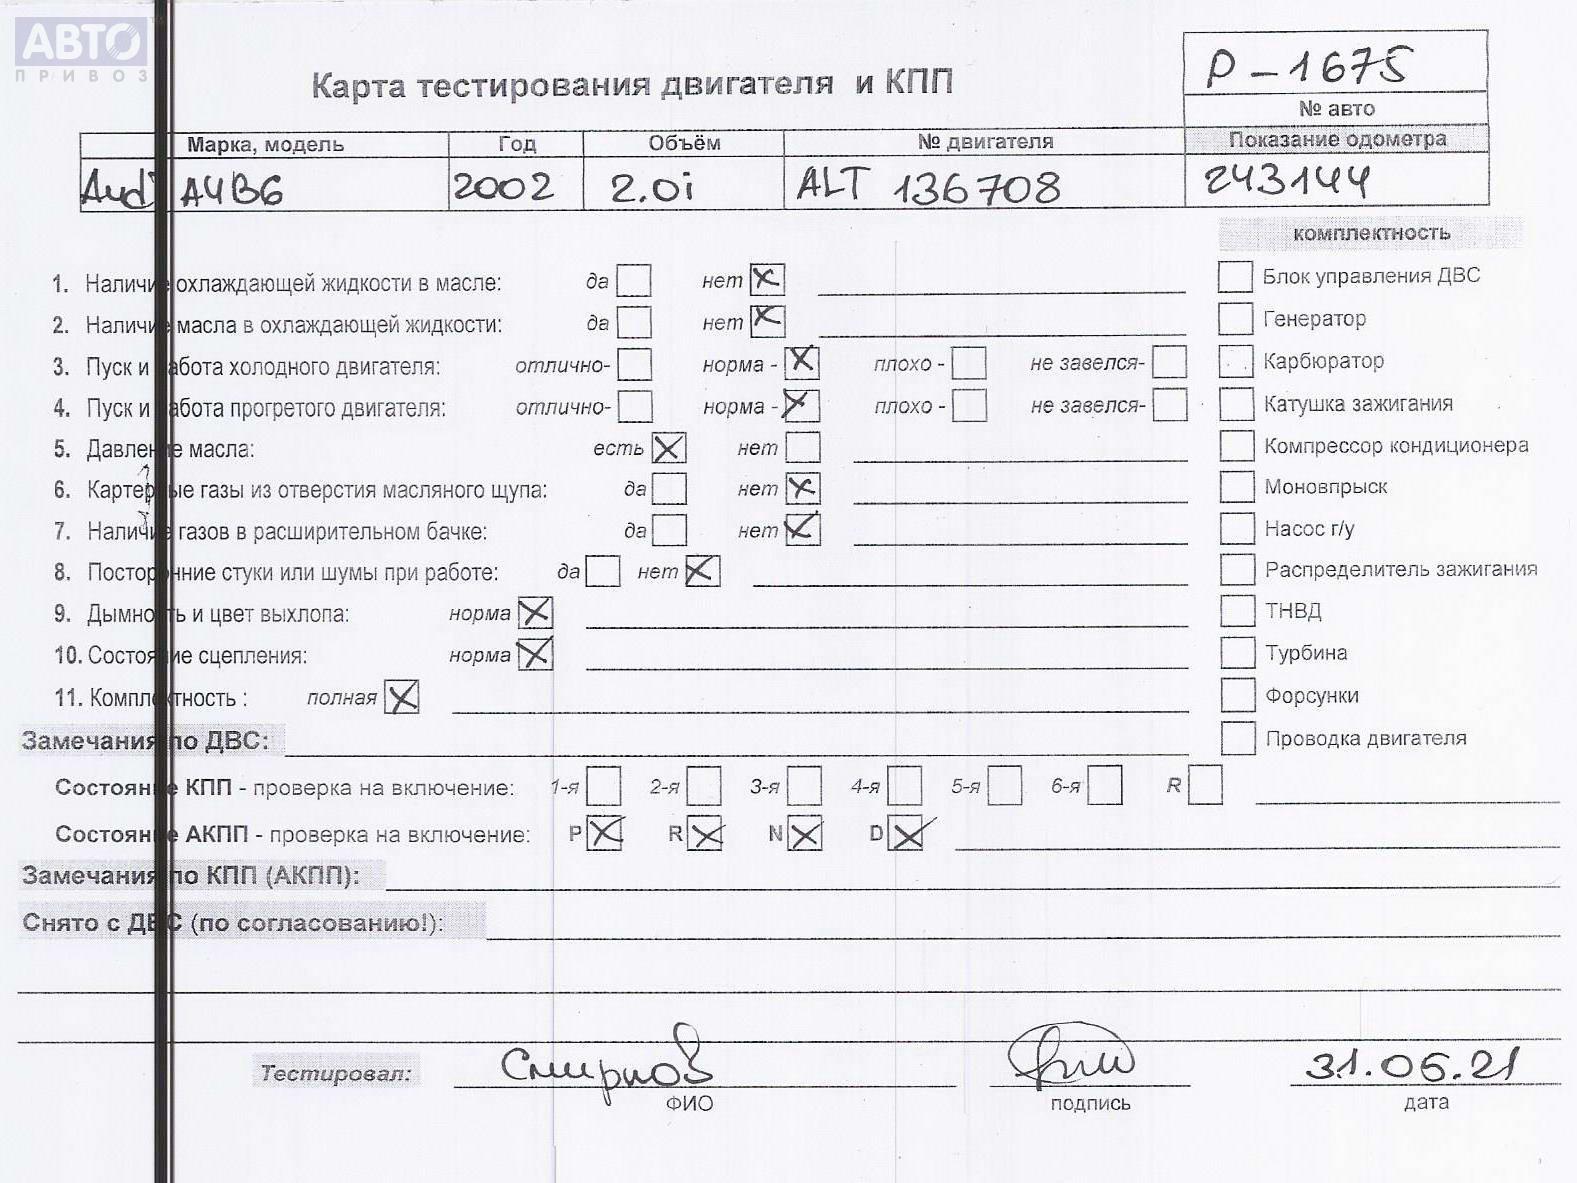 АВТО
ПРИВОЗ
Р-1675
Карта тестирования двигателя и КПП
№ авто
Марка, модель Год Объём № двигателя Показание одометра
Audi A4B6 2002 2.0i ALT 136708 243144
комплектность
1. Наличие охлаждающей жидкости в масле: да нет Блок управления ДВС
2. Наличие масла в охлаждающей жидкости: да нет Генератор
3. Пуск и работа холодного двигателя: отлично- норма - плохо - не завелся- Карбюратор
4. Пуск и работа прогретого двигателя: отлично- норма - плохо - не завелся- Катушка зажигания
5. Давление масла: есть нет Компрессор кондиционера
6. Картерные газы из отверстия масляного щупа: да нет Моновпрыск
7. Наличие газов в расширительном бачке: да нет Насос г/у
8. Посторонние стуки или шумы при работе: да нет Распределитель зажигания
9. Дымность и цвет выхлопа: норма ТНВД
10. Состояние сцепления: норма Турбина
11. Комплектность : полная Форсунки
Замечания по ДВС: Проводка двигателя
Состояние КПП - проверка на включение: 1-я 2-я 3-я 4-я 5-я 6-я R
Состояние АКПП - проверка на включение: P R N D
Замечания по КПП (АКПП):
Снято с ДВС (по согласованию!):
Тестировал: Смирнов 31.06.21
ФИО подпись дата